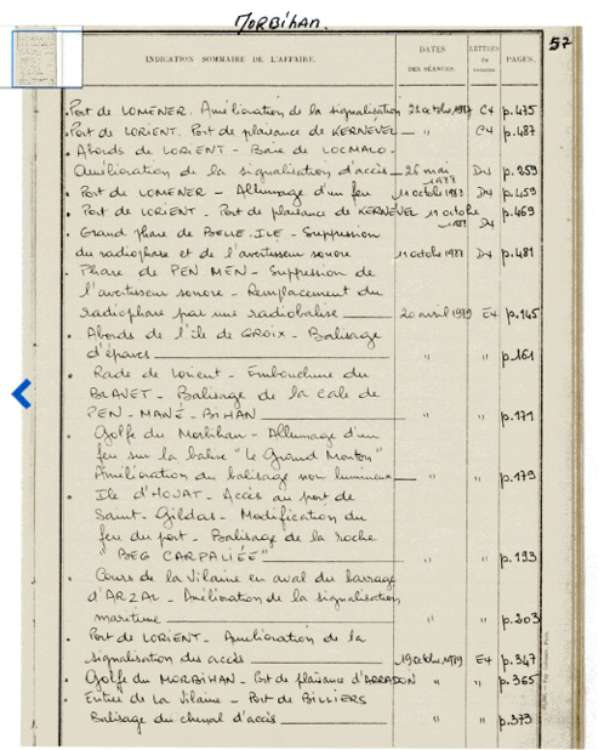 MORBIHAN.
57
INDICATION SOMMAIRE DE L'AFFAIRE. DATES DES SÉANCES. LETTRES PAGES.
Port de LOMENER. Amélioration de la signalisation 22 octobre 1987 C4 p.475
Port de LORIENT. Port de plaisance de KERNEVEL — " C4 p.487
Abords de LORIENT - Baie de LOCMALO -
Amélioration de la signalisation d'accès — 26 mai D4 p.259
Port de LOMENER - Allumage d'un feu 11 octobre 1988 D4 p.459
Port de LORIENT - Port de plaisance de KERNEVEL 11 octobre p.469
1988 D4
Grand phare de BELLE-ILE - Suppression
du radiophare et de l'avertisseur sonore 11 octobre 1988 D4 p.481
Phare de PEN MEN - Suppression de
l'avertisseur sonore - Remplacement du
radiophare par une radiobalise 20 avril 1989 E4 p.145
Abords de l'île de GROIX - Balisage
d'épaves " " p.161
Rade de Lorient - Embouchure du
BLAVET - Balisage de la cale de
PEN-MANÉ-BIHAN " " p.171
Golfe du Morbihan - Allumage d'un
feu sur la balise "Le Grand Mouton"
Amélioration du balisage non lumineux — " " p.179
Ile d'HOUAT - Accès au port de
Saint-Gildas - Modification du
feu du port - Balisage de la roche
"BEG CARPALIÉE" " " p.193
Cours de la Vilaine en aval du barrage
d'ARZAL - Amélioration de la signalisation
maritime " " p.203
Port de LORIENT - Amélioration de la
signalisation des accès 19 octobre 1989 E4 p.347
Golfe du MORBIHAN - Port de plaisance d'ARRADON " " p.365
Entrée de la Vilaine - Port de BILLIERS
Balisage du chenal d'accès " " p.373